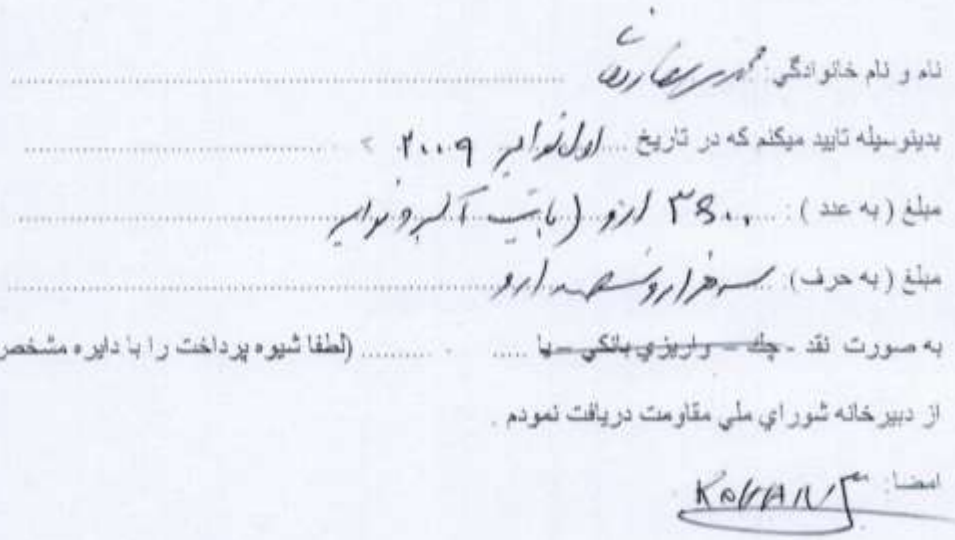 نام و نام خانوادگي: محمد
بدينوسيله تاييد ميكنم كه در تاريخ .... اول نوامبر ۲۰۰۹
مبلغ ( به عدد ) : ۳۶۰۰ ارو (بابت اكتبر و نوامبر
مبلغ ( به حرف ) سه هزار و ششصد ارو
به صورت نقد - چك - واريزي بانكي - يا ..... (لطفا شيوه پرداخت را با دايره مشخص
از دبيرخانه شوراي ملي مقاومت دريافت نمودم .
امضا: